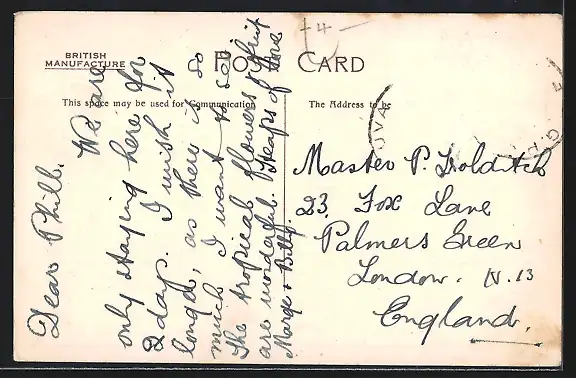 BRITISH
MANUFACTURE
POST CARD
This space may be used for Communication
The Address to be
+4-
UVA
Dear Phill.
We are
only staying here for
2 days. I wish it
longer, as there is so
much I want to see
The tropical flowers & fruit
are wonderful. Heaps of love
Marge & Billy.
Master P. Holditch
23, Fox Lane
Palmers Green
London. N.13
England.